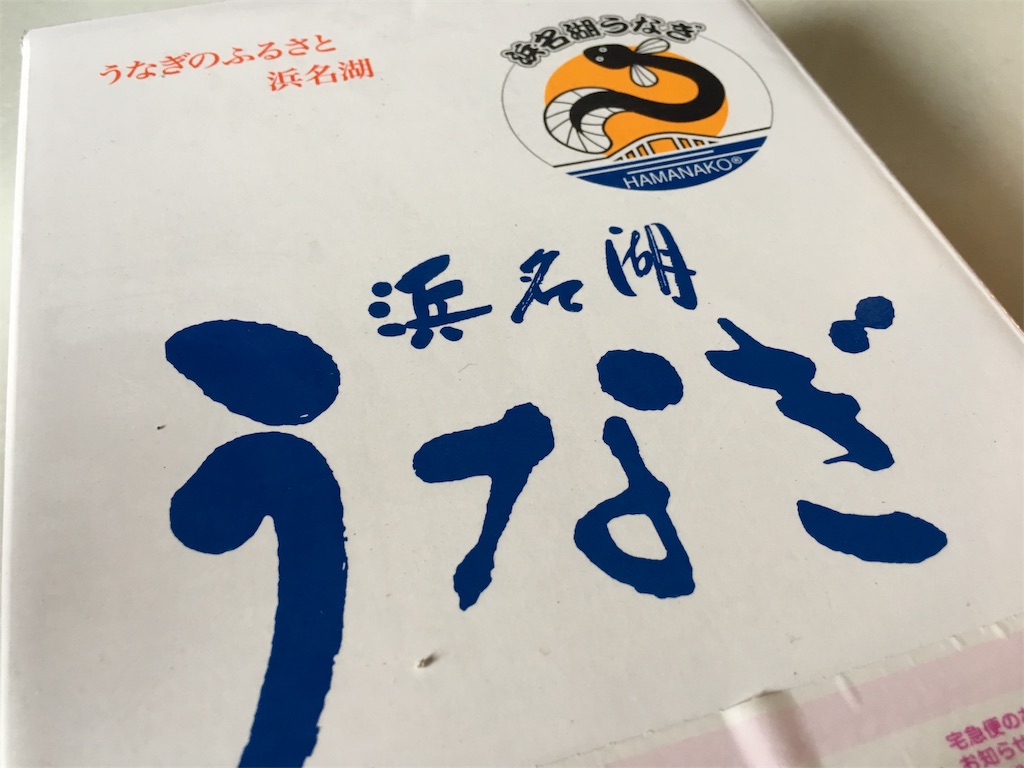 うなぎのふるさと
浜名湖
浜名湖うなぎ
HAMANAKO®
浜名湖
うなぎ
宅急便の
お知らせ